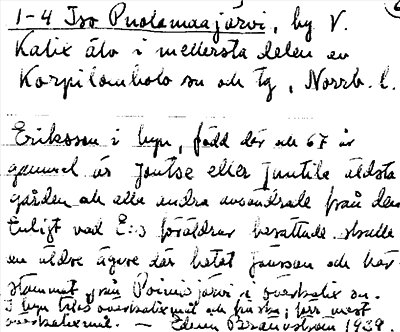 1-4 Iso Puolamaajärvi, by V.
Kalix älv i mellersta delen av
Korpilombolo sn och tg, Norrb. l.
Eriksson i byn, född där och 67 år
gammal är Jontse eller Juntila äldsta
gården och alla andra avsöndrade från den
Enligt vad E:s föräldrar berättade skulle
en äldre ägare där hetat Jönsson och här-
stammat från Poimajärvi i överkalix sn.
I byn talas överkalixmål och finska; förr mest
överkalixmål. — Edvin Brännström 1939.